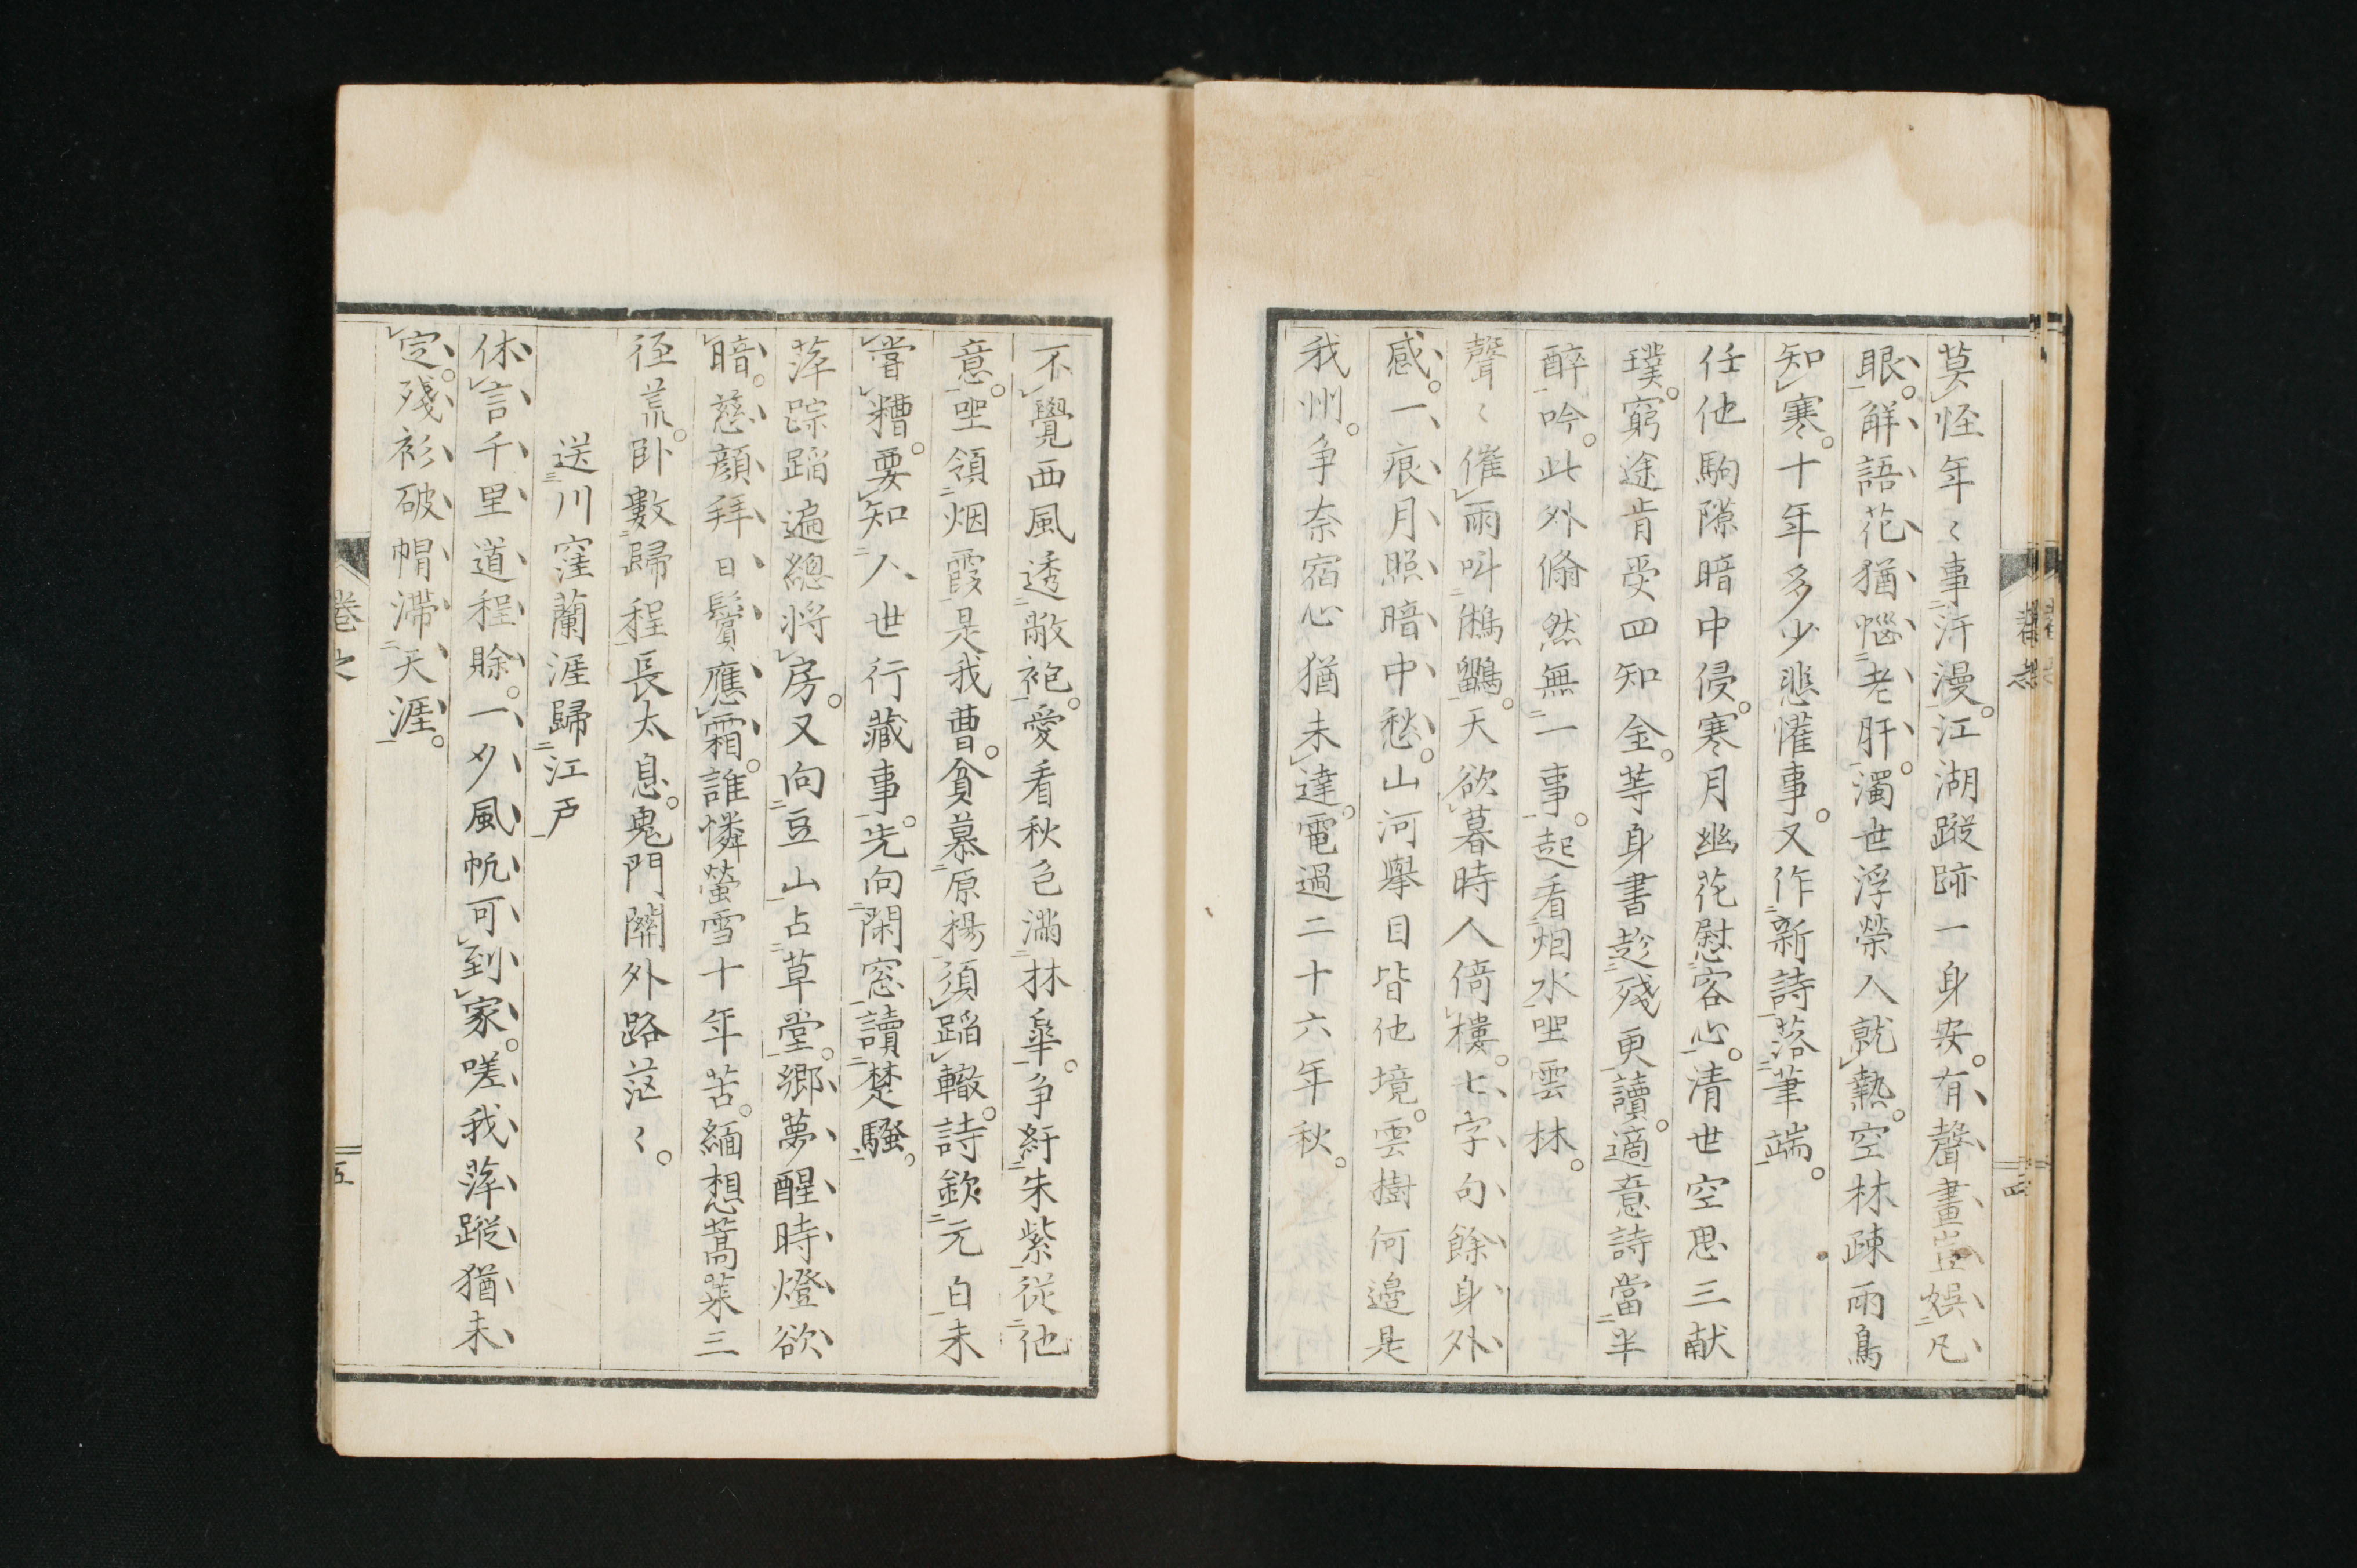 莫怪年〻事汗漫。江湖蹤跡一身安。有聲畫豈娯凡
眼。解語花猶惱老肝。濁世浮榮人就熱。空林疎雨鳥
知寒。十年多少悲懽事。又作新詩落筆端。
任他駒隙暗中侵。寒月幽花慰客心。清世空思三献
璞。窮途肯受四知金。等身書趁殘更讀。適意詩當半
醉吟。此外翛然無一事。起看烟水唑雲林。
聲〻催雨叫鵂鶹。天欲暮時人倚樓。七字句餘身外
感。一痕月照暗中愁。山河擧目皆他境。雲樹何邉是
我州。争奈宿心猶未達。電過二十六年秋。
四
不覺西風透敝袍。愛看秋色滿林皐。争紆朱紫從他
意。唑領烟霞是我曹。貧慕原楊須蹈轍。詩欽元白未
甞糟。要知人世行藏事。先向閑窓讀楚騷。
萍踪蹈遍總將房。又向豆山占草堂。郷夢醒時燈欲
暗。慈顔拜日鬢應霜。誰憐螢雪十年苦。緬想蒿萊三
徑荒。卧數歸程長太息。鬼門關外路茫〻。
送川窪蘭涯歸江戸
休言千里道程賒。一夕風帆可到家。嗟我萍蹤猶未
定。殘衫破帽滞天涯。
卷之
五